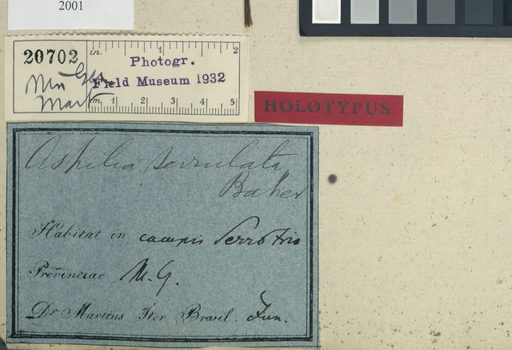 2001
20702
in. 1 2
Photogr.
Field Museum 1932
Mart
m. 1 2 3 4 5
HOLOTYPUS
Aspilia serrulata
Baker
Habitat in campis Serro frio
Provinciae M. G.
Dr Martius Iter Brasil. Jun.